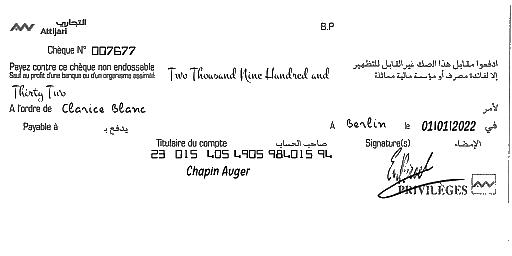 التجاري
Attijari
B.P
Chèque N° 007677
Payez contre ce chèque non endossable
Sauf au profit d'une banque ou d'un organisme assimilé
Two Thousand Nine Hundred and
ادفعوا مقابل هذا الصك غير القابل للتظهير
إلا لفائدة مصرف أو مؤسسة مالية مماثلة
Thirty Two
A l'ordre de Clarice Blanc
لأمر
Payable à يدفع بـ
A Berlin le 01/01/2022 في
Titulaire du compte صاحب الحساب
Signature(s) الإمضاء
23 015 405 4905 984015 94
Chapin Auger
PRIVILÈGES